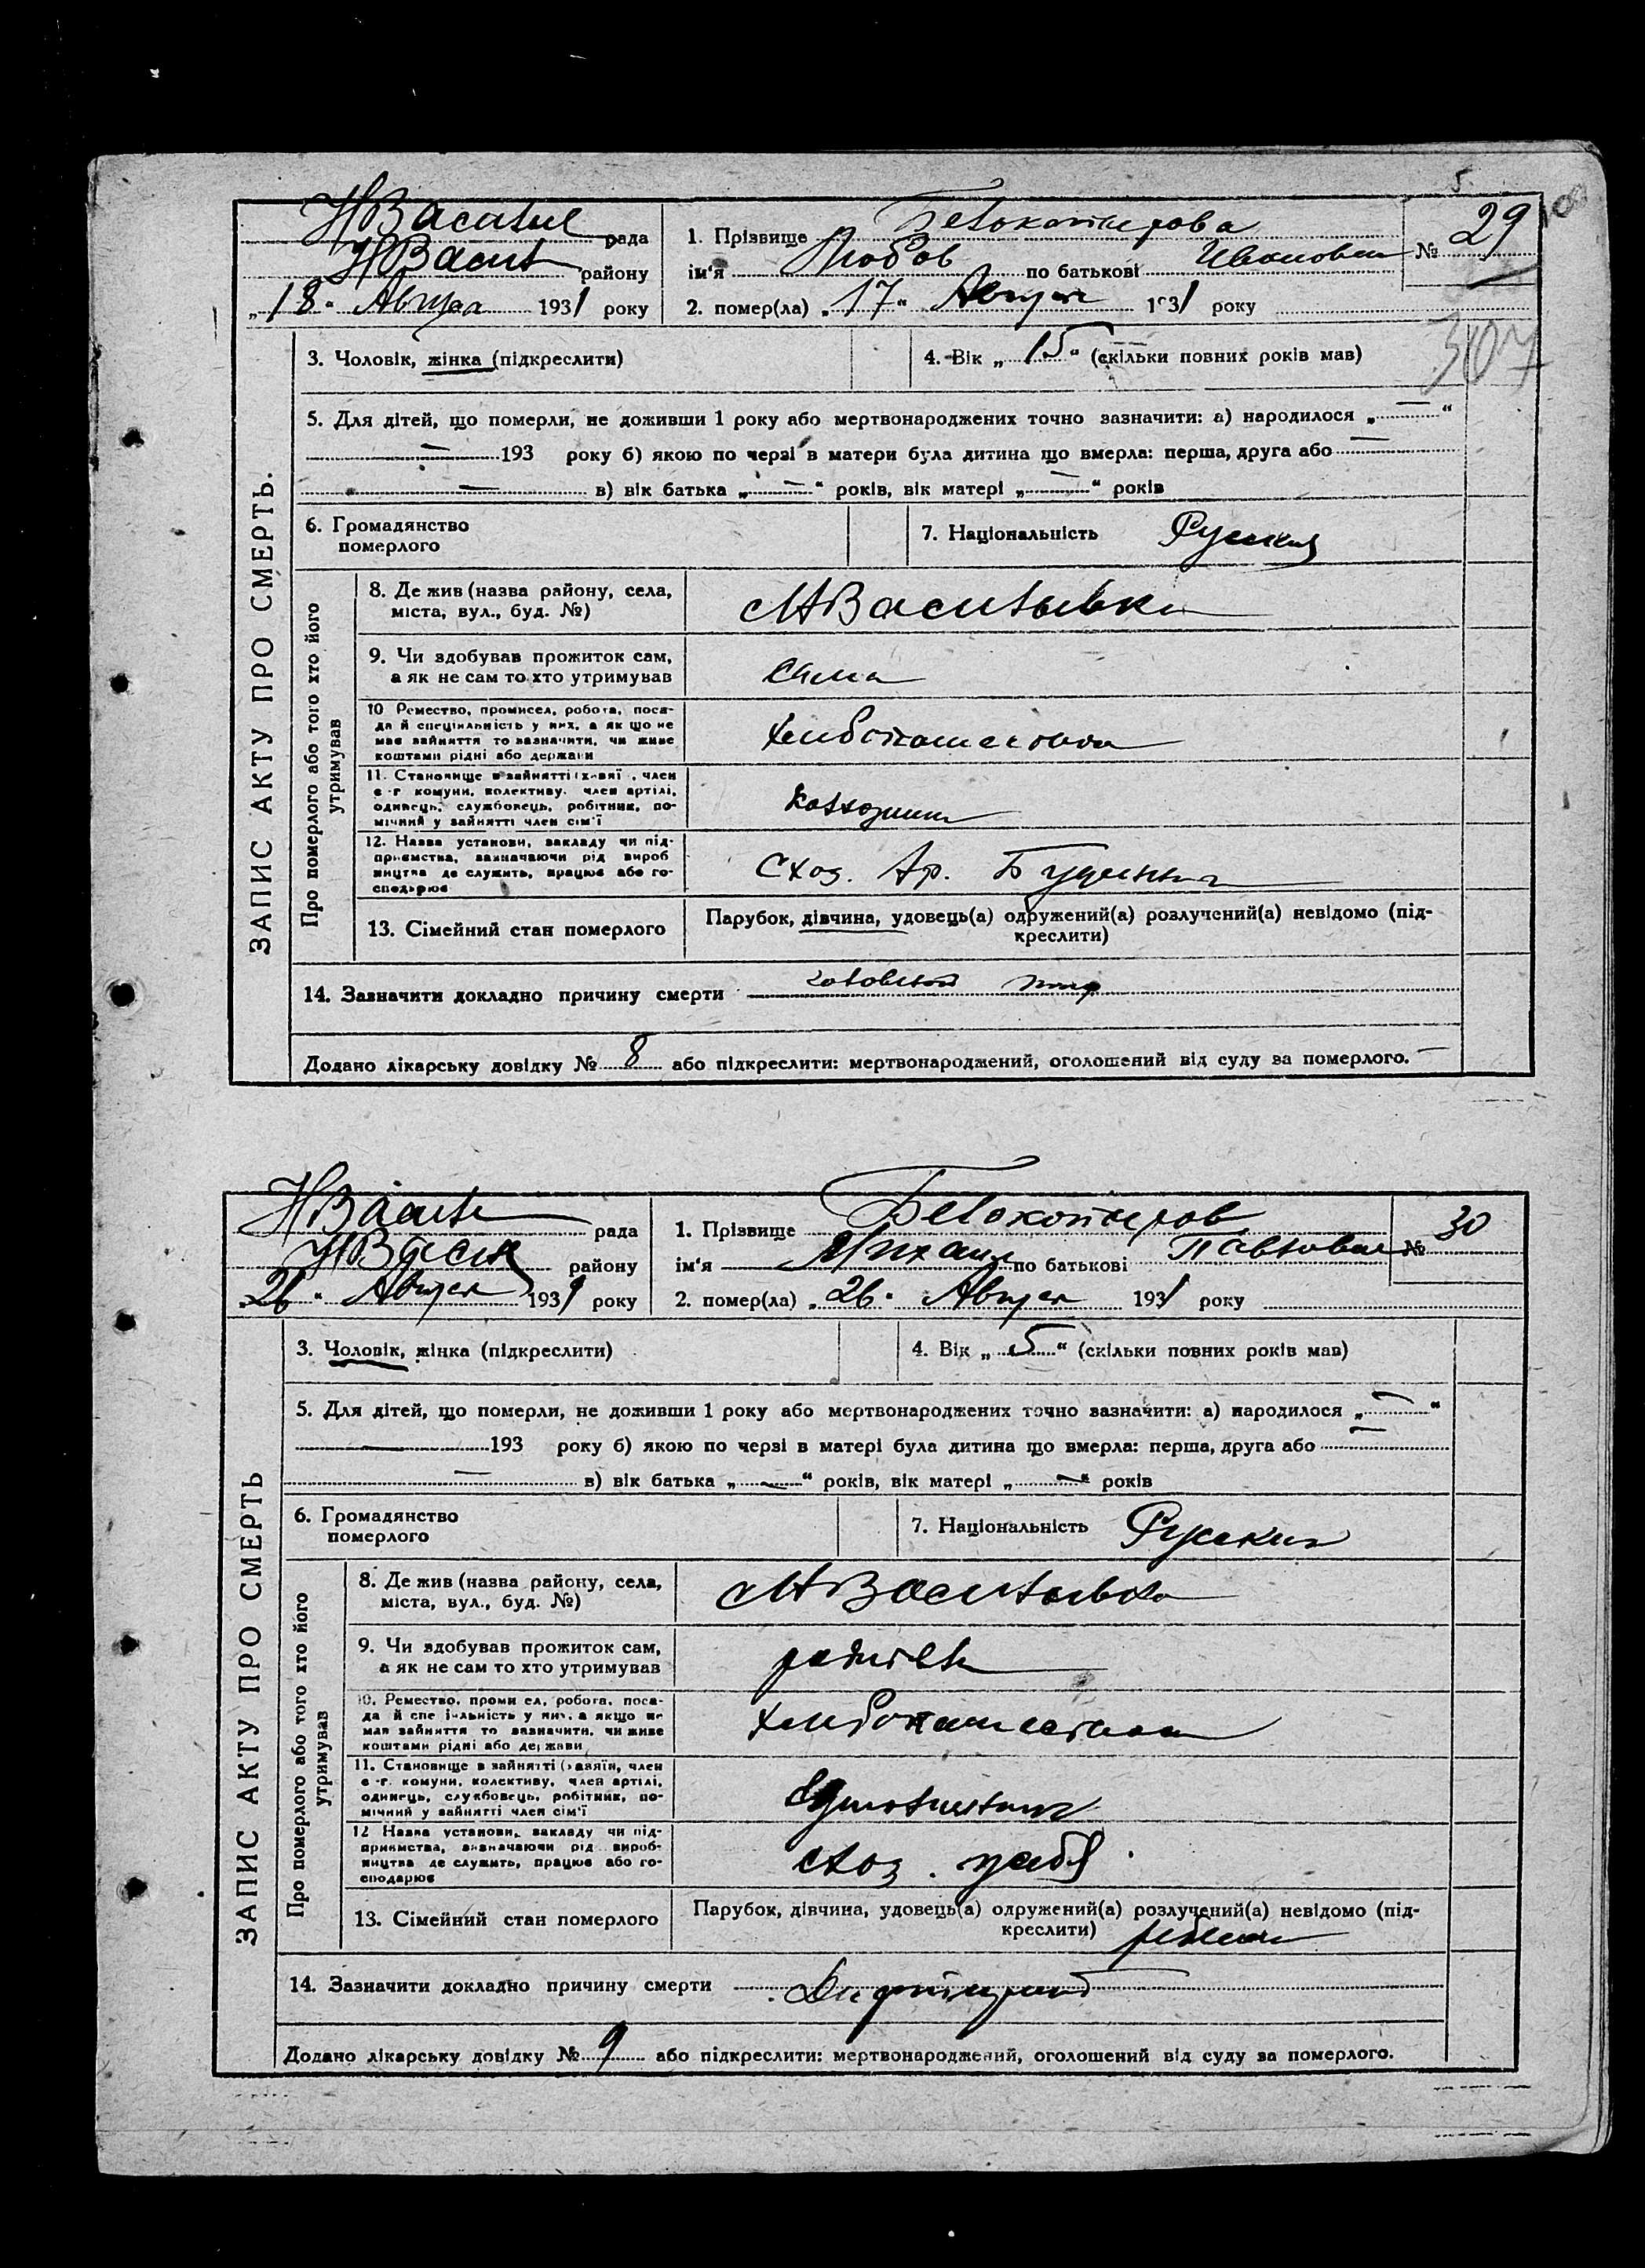 5
НВасильев рада
НВасил району
„18“ Августа 1931 року
1. Прізвище Белокопытова
ім'я Любов по батькові Ивановна
№ 29
2. помер(ла) „17“ Августа 1931 року
307
ЗАПИС АКТУ ПРО СМЕРТЬ.
3. Чоловік, жінка (підкреслити)
4. Вік „15“ (скільки повних років мав)
5. Для дітей, що померли, не доживши 1 року або мертвонароджених точно зазначити: а) народилося „—“
— 193 року б) якою по черзі в матери була дитина що вмерла: перша, друга або —
— в) вік батька „—“ років, вік матері „—“ років
6. Громадянство
померлого
7. Національність Русская
Про померлого або того хто його
утримував
8. Де жив (назва району, села,
міста, вул., буд. №)
НВасильевка
9. Чи здобував прожиток сам,
а як не сам то хто утримував
сама
10 Ремество, промисел, робота, поса-
да й спеціяльність у них, а як що не
має зайняття то зазначити, чи живе
коштами рідні або держави
хлибопашество
11. Становище в зайнятті (хазяї, член
с-г. комуни, колективу, член артілі,
одинець, службовець, робітник, по-
мічний у зайнятті член сім'ї
колхозница
12. Назва установи, закладу чи під-
приємства, зазначаючи рід вироб
ництва де служить, працює або го-
сподарює
Схоз. Ар. Буденный
13. Сімейний стан померлого
Парубок, дівчина, удовець(а) одружений(а) розлучений(а) невідомо (під-
креслити)
14. Зазначити докладно причину смерти головной тиф
Додано лікарську довідку № 8 або підкреслити: мертвонароджений, оголошений від суду за померлого. —
НВасил рада
НВасил району
„26“ Августа 1931 року
1. Прізвище Белокопытов
ім'я Михаил по батькові Павлович
№ 30
2. помер(ла) „26“ Августа 1931 року
ЗАПИС АКТУ ПРО СМЕРТЬ
3. Чоловік, жінка (підкреслити)
4. Вік „5“ (скільки повних років мав)
5. Для дітей, що померли, не доживши 1 року або мертвонароджених точно зазначити: а) народилося „—“
— 193 року б) якою по черзі в матері була дитина що вмерла: перша, друга або —
— в) вік батька „—“ років, вік матері „—“ років
6. Громадянство
померлого
7. Національність Русский
Про померлого або того хто його
утримував
8. Де жив (назва району, села,
міста, вул., буд. №)
НВасильевка
9. Чи здобував прожиток сам,
а як не сам то хто утримував
родители
10. Ремество, промисел, робота, поса-
да й спеціяльність у них, а якщо не
мав зайняття то зазначити, чи живе
коштами рідні або держави
хлибопашество
11. Становище в зайнятті (хазяїн, член
с-г. комуни, колективу, член артілі,
одинець, службовець, робітник, по-
мічний у зайнятті член сім'ї
Единоличник
12 Назва установи, закладу чи під-
приємства, зазначаючи рід вироб-
ництва де служить, працює або го-
сподарює
схоз. у себя
13. Сімейний стан померлого
Парубок, дівчина, удовець(а) одружений(а) розлучений(а) невідомо (під-
креслити) ребенок
14. Зазначити докладно причину смерти Дифтерит
Додано лікарську довідку № 9 або підкреслити: мертвонароджений, оголошений від суду за померлого.